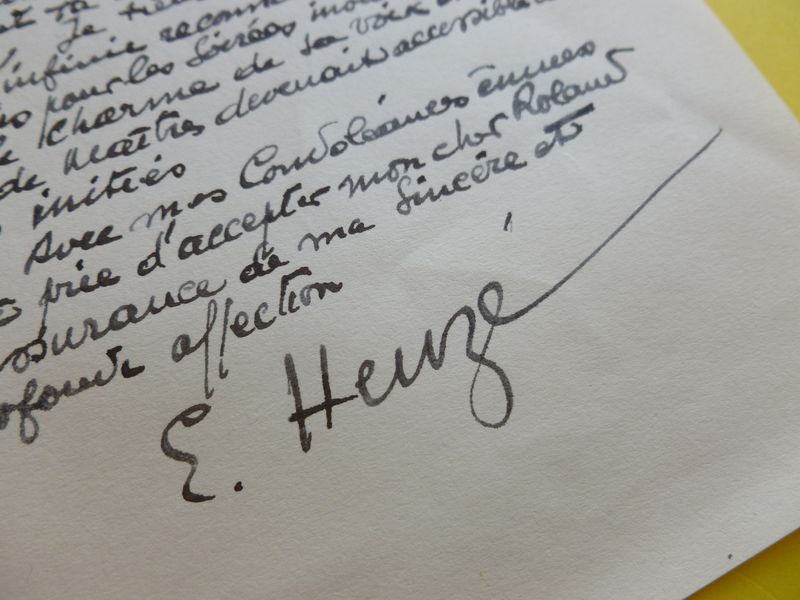 Je
infinie reconn
pour les soirées ino
charme de sa voix
de Maîtres devenait accessible
initiés
Avec mes Condoléances émues
prie d'accepter mon cher Roland
ssurance de ma sincère et
ofonde affection
E. Heuzé